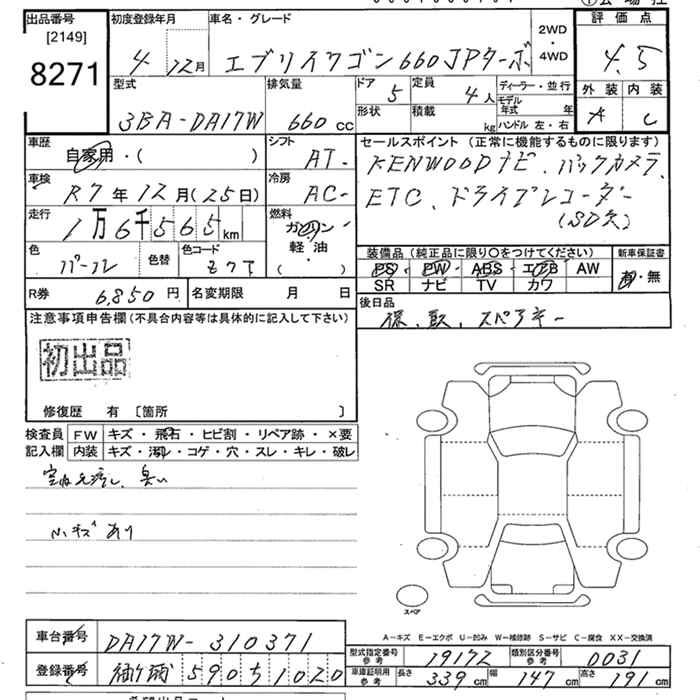 出品番号
[2149]
8271
初度登録年月
4 12月
車名・グレード
エブリイワゴン 660 JPターボ
2WD
・
4WD
評価点
4.5
外装 内装
A C
型式
3BA-DA17W
排気量
660 cc
ドア
5
定員
4人
形状
積載
kg
ディーラー・並行
モデル年式 年
ハンドル 左・右
車歴
自家用・( )
シフト
AT-
車検
R7年12月(25日)
冷房
AC-
走行
1万6千565km
燃料
ガソリン
軽油
( ・ )
色
パール
色替
色コード
セールスポイント (正常に機能するものに限ります)
KENWOODナビ、バックカメラ、
ETC、ドライブレコーダー
(SD欠)
装備品(純正品に限り〇をつけてください)
PS・PW・ABS・エアB AW
SR ナビ TV カワ
新車保証書
有・無
R券 6,850円
名変期限 月 日
後日品
保、取、スペアキー
注意事項申告欄(不具合内容等は具体的に記入して下さい)
初出品
修復歴 有 [箇所 ]
検査員
記入欄
FW キズ・飛石・ヒビ割・リペア跡・×要
内装 キズ・汚れ・コゲ・穴・スレ・キレ・破レ
小キズあり
スペア
A-キズ E-エクボ U-凹み W-補修跡 S-サビ C-腐食 XX-交換済
車台番号 DA17W-310371
登録番号 590 51020
型式指定番号
参考
19172
類別区分番号
参考
0031
車庫証明用
参考
長さ 339cm 幅 147cm 高さ 191cm